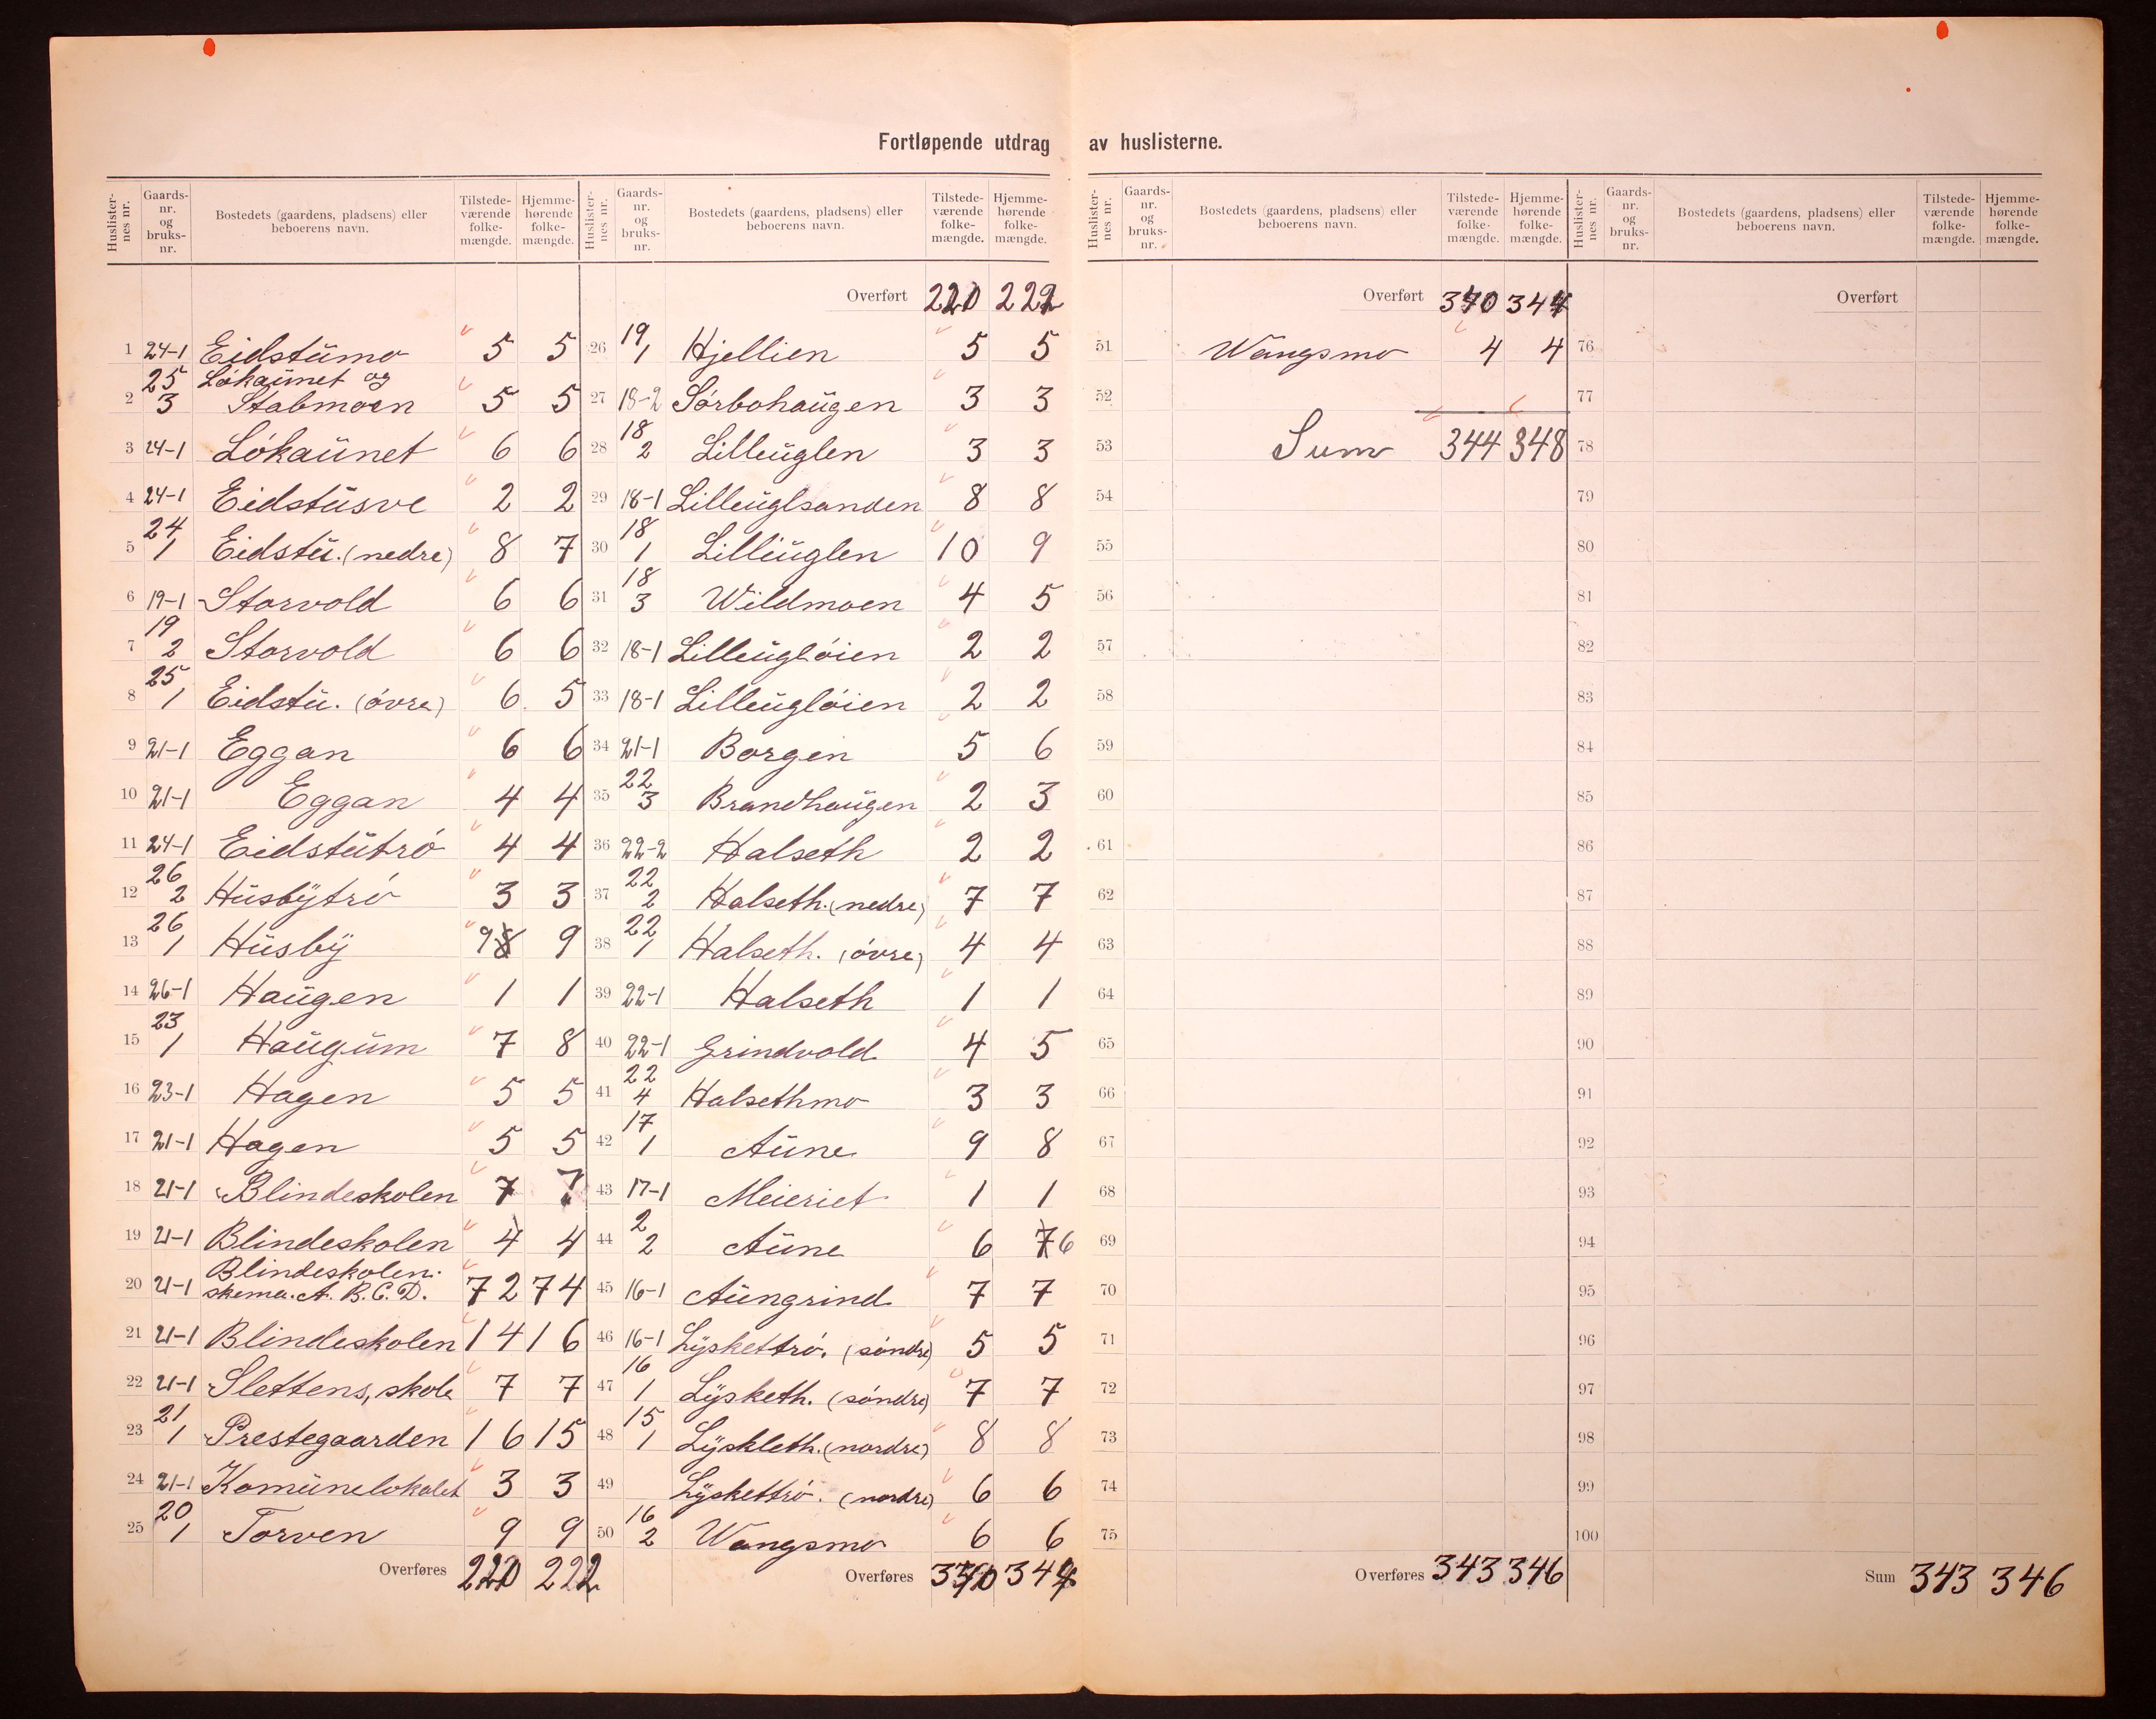 Fortløpende utdrag av huslisterne.
Huslisternes nr. Gaards-nr. og bruks-nr. Bostedets (gaardens, pladsens) eller beboerens navn. Tilstedeværende folkemængde. Hjemmehørende folkemængde.
1 24-1 Eidstümo 5 5
2 25 3 Lökaünet og Stabmoen 5 5
3 24-1 Lökaünet 6 6
4 24-1 Eidstüsve 2 2
5 24 1 Eidstü. (nedre) 8 7
6 19-1 Storvold 6 6
7 19 2 Storvold 6 6
8 25 1 Eidstü. (óvre) 6 5
9 21-1 Eggan 6 6
10 21-1 Eggan 4 4
11 24-1 Eidstütró 4 4
12 26 2 Hüsbÿtró 3 3
13 26 1 Hüsbÿ 9 9
14 26-1 Haügen 1 1
15 23 1 Haügüm 7 8
16 23-1 Hagen 5 5
17 21-1 Hagen 5 5
18 21-1 Blindeskolen 7 7
19 21-1 Blindeskolen 4 4
20 21-1 Blindeskolen. skema. A. B. C. D. 72 74
21 21-1 Blindeskolen 14 16
22 21-1 Slettens, skole 7 7
23 21 1 Prestegaarden 16 15
24 21-1 Komünelokalet 3 3
25 20 1 Torven 9 9
Overføres 220 222
Huslisternes nr. Gaards-nr. og bruks-nr. Bostedets (gaardens, pladsens) eller beboerens navn. Tilstedeværende folkemængde. Hjemmehørende folkemængde.
Overført 220 222
26 19 1 Hjellien 5 5
27 18-2 Sórbohaügen 3 3
28 18 2 Lilleüglen 3 3
29 18-1 Lilleüglsanden 8 8
30 18 1 Lilleüglen 10 9
31 18 3 Wildmoen 4 5
32 18-1 Lilleüglóien 2 2
33 18-1 Lilleüglóien 2 2
34 21-1 Borgen 5 6
35 22 3 Brandhaügen 2 3
36 22-2 Halseth 2 2
37 22 2 Halseth. (nedre) 7 7
38 22 1 Halseth. (óvre) 4 4
39 22-1 Halseth 1 1
40 22-1 Grindvold 4 5
41 22 4 Halsethmo 3 3
42 17 1 Aüne 9 8
43 17-1 Meieriet 1 1
44 2 2 Aüne 6 7 6
45 16-1 Aüngrind 7 7
46 16-1 Lÿskettró. (söndre) 5 5
47 16 1 Lÿsketh. (söndre) 7 7
48 15 1 Lÿskleth. (nordre) 8 8
49 Lÿskettró. (nordre) 6 6
50 16 2 Wangsmo 6 6
Overføres 340 344
Huslisternes nr. Gaards-nr. og bruks-nr. Bostedets (gaardens, pladsens) eller beboerens navn. Tilstedeværende folkemængde. Hjemmehørende folkemængde.
Overført 340 344
51 Wangsmo 4 4
52
53 Sum 344 348
54
55
56
57
58
59
60
61
62
63
64
65
66
67
68
69
70
71
72
73
74
75
Overføres 343 346
Huslisternes nr. Gaards-nr. og bruks-nr. Bostedets (gaardens, pladsens) eller beboerens navn. Tilstedeværende folkemængde. Hjemmehørende folkemængde.
Overført
76
77
78
79
80
81
82
83
84
85
86
87
88
89
90
91
92
93
94
95
96
97
98
99
100
Sum 343 346